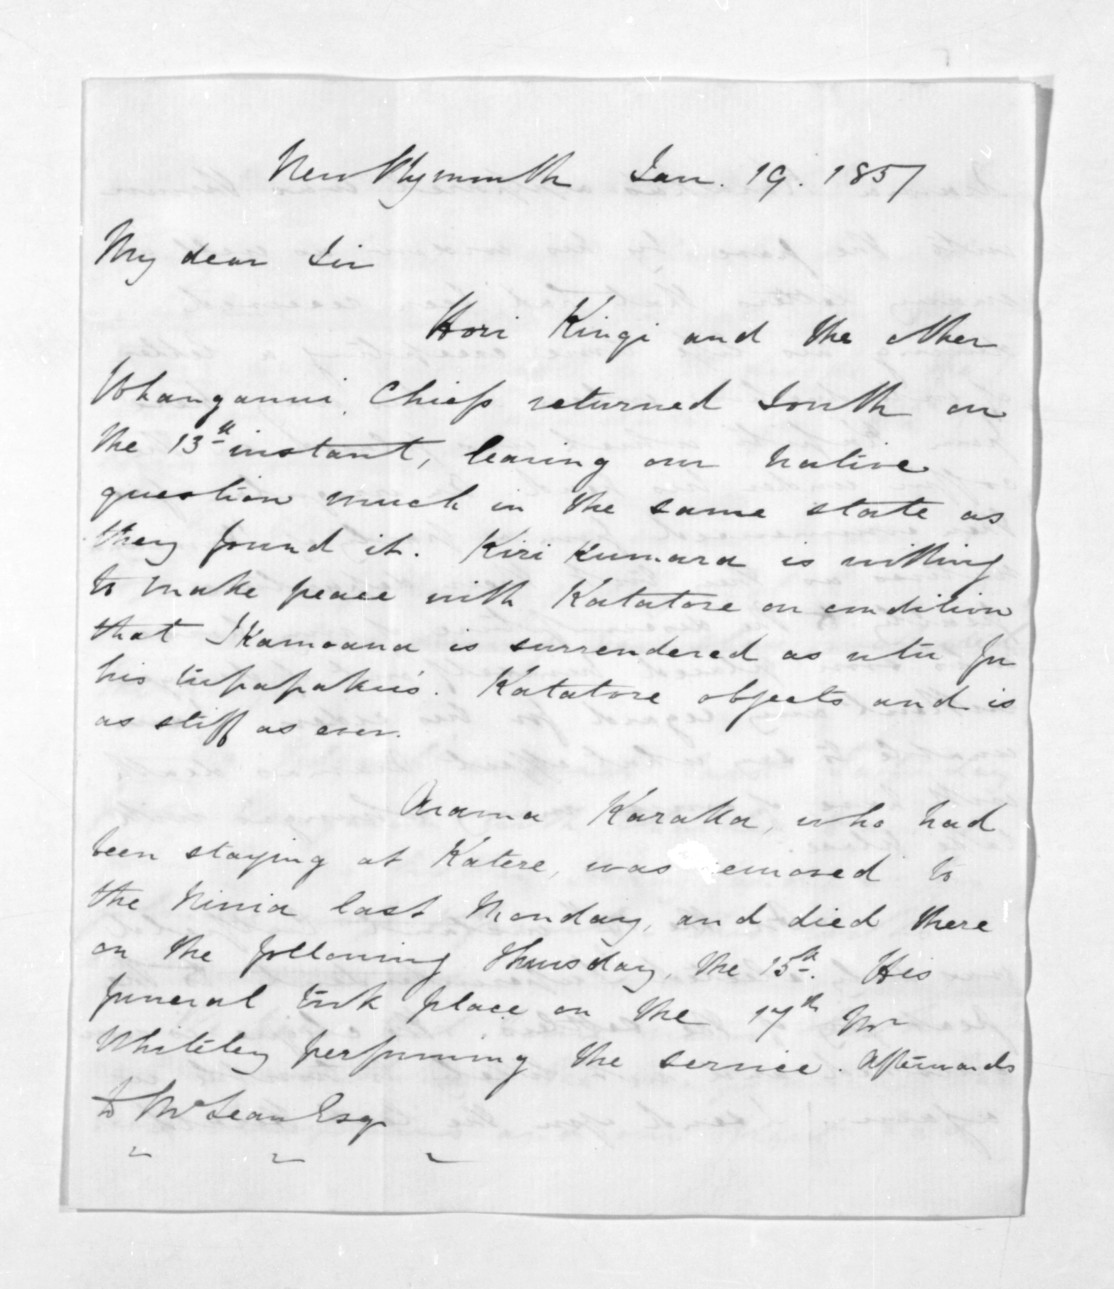 New Plymouth Jan. 19. 1857
My dear Sir
Hori Kingi and the other
Whanganui Chiefs returned South on
the 13th instant, leaving our native
question much in the same state as
they found it. Kiri Kumara is willing
to make peace with Katatore on condition
that Ikamoana is surrendered as utu for
his tupapakus. Katatore objects and is
as stiff as ever.
Arama Karaka, who had
been staying at Katere, was removed to
the Ninia last Monday, and died there
on the following Thursday, the 15th. His
funeral took place on the 17th Mr
Whiteley performing the service. Afterwards
D McLean Esq